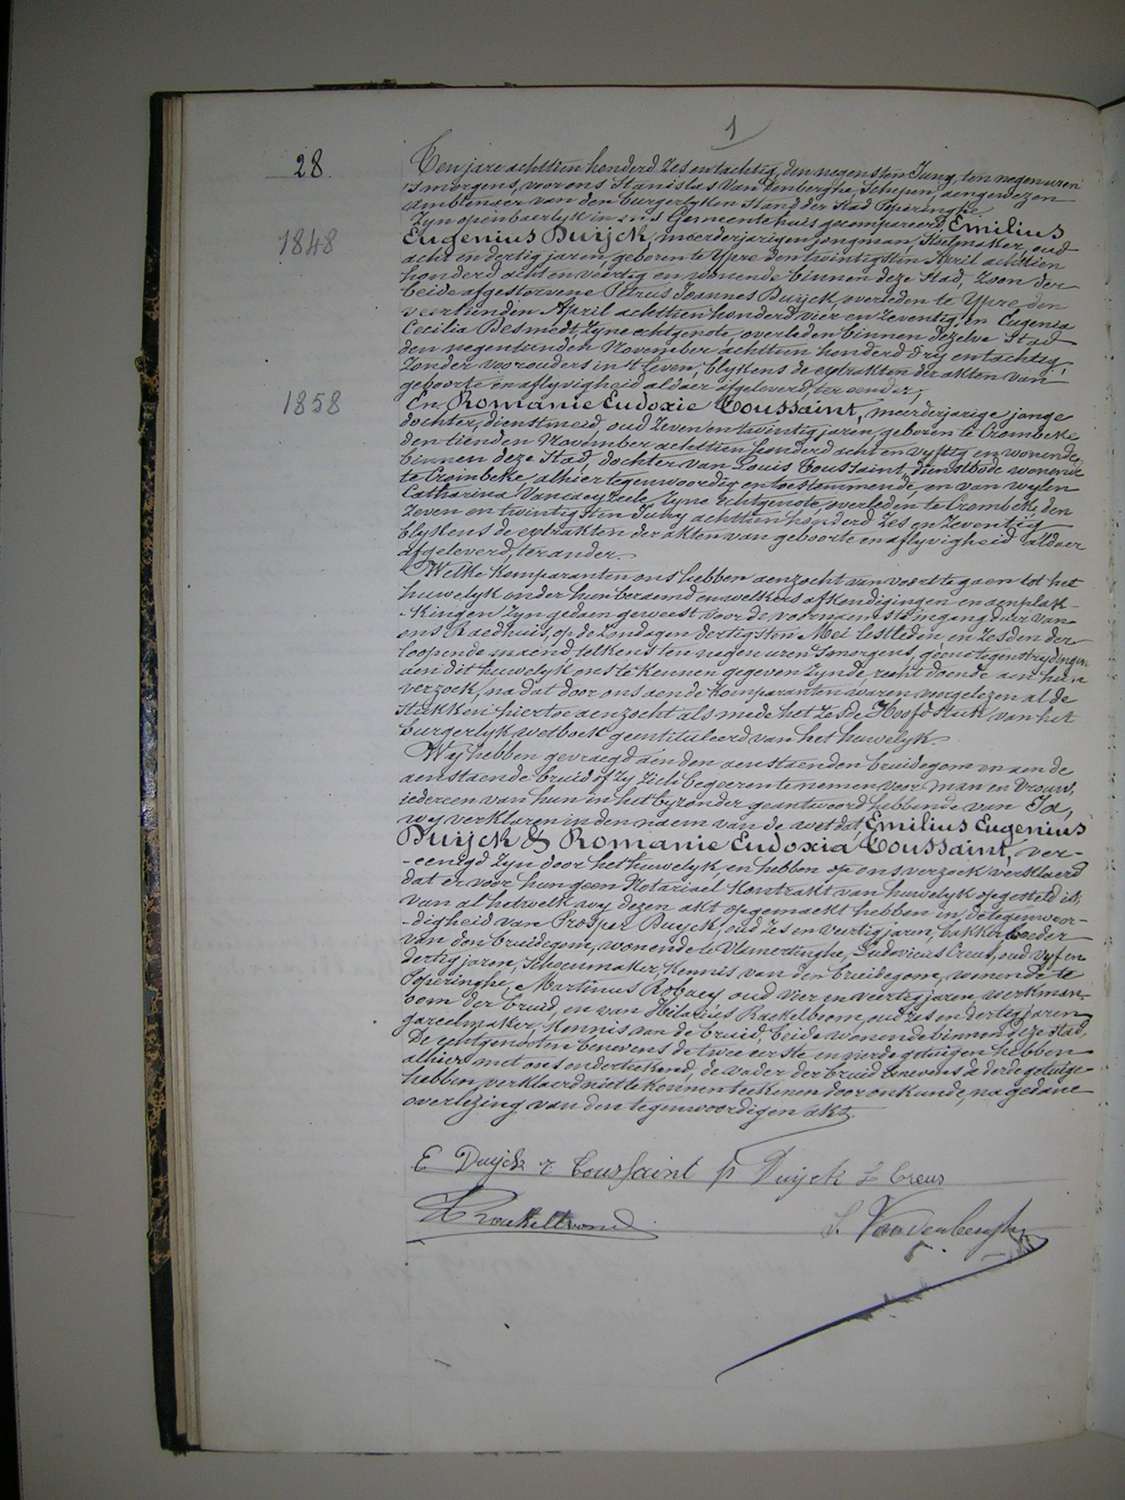 1
28.
Ten jare achttien honderd zes en tachtig, den negensten Juny, ten negen uren
's morgens, voor ons Stanislas Van denberghe, Schepen, aengewezen
Ambtenaer van den burgerlyken Stand der Stad Poperinghe
Zyn openbaerlyk in ons Gemeentehuis gecompareerd, Emilius
1848
Eugenius Duÿck, meerderjarigen jongman, Stoelmaker, oud
acht en dertig jaren, geboren te Ypre den twintigsten April achttien
honderd acht en veertig en wonende binnen deze Stad, Zoon der
beide afgestorvene Petrus Joannes Duijck, overleden te Ypre den
veertienden April achttien honderd vier en zeventig, en Eugenia
Cecilia Desmedt zyne echtgenote, overleden binnen dezelve Stad
den negentienden November achttien honderd dry en tachtig,
Zonder voorouders in 't leven, blykens de extrakten der akten van
geboorte en aflyvigheid aldaer afgeleverd, ter eender;
1858
En Romanie Eudoxie Toussaint, meerderjarige jonge
dochter, dienstmeid, oud zeven en twintig jaren, geboren te Crombeke
den tienden November achttien honderd acht en vyftig en wonende
binnen deze Stad, dochter van Louis Toussaint, dienstbode wonende
te Crombeke, alhier tegenwoordig en toestemmende, en van wylen
Catharina Vancaeyzeele, zyne echtgenote, overleden te Crombeke den
Zeven en twintigsten Juny achttien honderd zes en zeventig
blykens de extrakten der akten van geboorte en aflyvigheid aldaer
afgeleverd, ter ander.
Welke komparanten ons hebben aenzocht van voort te gaen tot het
huwelyk onder hun beraemd en welkers afkondigingen en aenplak-
-kingen zyn gedaen geweest voor de voornaemste ingang deur van
ons Raedhuis, op de zondagen dertigsten Mei lestleden, en zesden der
loopende maend telkens ten negen uren s'morgens, geene tegenstrydingen
aen dit huwelyk ons te kennen gegeven zynde, recht doende aen hun
verzoek, na dat door ons aen de komparanten waren voorgelezen al de
stukken hiertoe aenzocht als mede het zesde Hoofdstuk van het
burgerlyk wetboek geintituleerd van het huwelyk.
Wy hebben gevraegd aen den aenstaenden bruidegom en aen de
aenstaende bruid of zy zich begeeren te nemen voor man en vrouw,
iedereen van hun in het byzonder geantwoord hebbende van Ja,
wy verklaren in den naem van de wet dat Emilius Eugenius
Duijck & Romanie Eudoxia Toussaint, ver-
-eenigd zyn door het huwelyk, en hebben op ons verzoek verklaerd
dat er voor hun geen Notariael Kontrakt van huwelyk opgesteld is,
van al hetwelk wy dezen akt opgemaekt hebben in de tegenwoor-
-digheid van Prosper Duyck, oud zes en veertig jaren, bakker broeder
van den bruidegom, wonende te Vlamertinghe, Ludovicus Creus, oud vyf en
dertig jaren, Schoenmaker, kennis van den bruidegom, wonende te
Poperinghe, Martinus Robaey oud vier en veertig jaren, werkman,
oom der bruid, en van Hilarius Raekelboom, oud zes en dertig jaren
gareelmaker, kennis van de bruid, beide wonende binnen deze stad,
De echtgenoten benevens de twee eerste en vierde getuigen hebben
alhier met ons onderteekend, de vader der bruid benevens de derde getuige
hebben verklaerd niet te konnen teekenen door onkunde, na gedane
overlezing van den tegenwoordigen akt.
E Duijck r Toussaint p Duijck L Creus
S. Vandenberghe